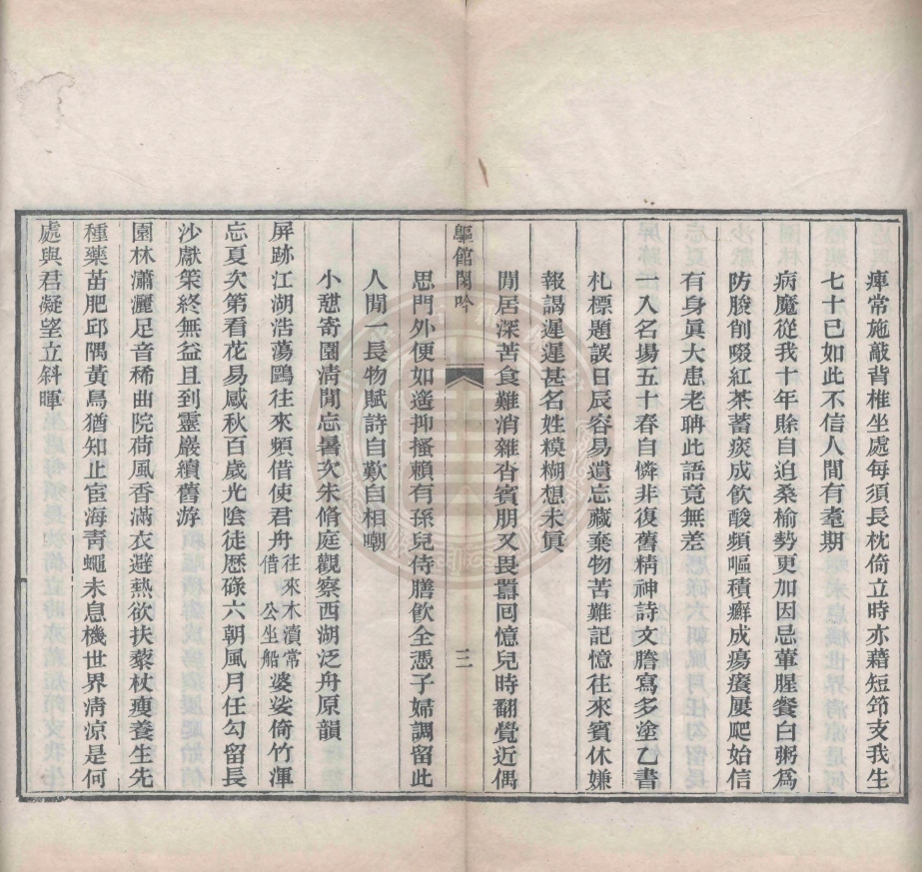 痺常施敲背椎坐處每須長枕倚立時亦藉短笻支我生
七十已如此不信人間有耄期
病魔從我十年賒自迫桑榆勢更加因忌葷腥餐白粥爲
防朘削啜紅茶蓄痰成飲酸頻嘔積癬成瘍癢屢爬始信
有身眞大患老聃此語竟無差
一入名場五十春自憐非復舊精神詩文謄寫多塗乙書
札標題誤日辰容易遺忘藏棄物苦難記憶往來賓休嫌
報謁遲遲甚名姓糢糊想未眞
閒居深苦食難消雜沓賓朋又畏囂回憶兒時翻覺近偶
館閑吟
三
思門外便如遙抑搔賴有孫兒侍膳飲全憑子婦調留此
人閒一長物賦詩自歎自相嘲
小憇寄園淸閒忘暑次朱脩庭觀察西湖泛舟原韻
屏跡江湖浩蕩鷗往來頻借使君舟往來木瀆常借公坐船婆娑倚竹渾
忘夏次第看花易感秋百歲光陰徒歴碌六朝風月任勾留長
沙獻策終無益且到靈巖續舊游
園林瀟灑足音稀曲院荷風香滿衣避熱欲扶藜杖瘦養生先
種藥苗肥邱隅黃鳥猶知止宦海靑蠅未息機世界淸涼是何
處與君凝望立斜暉